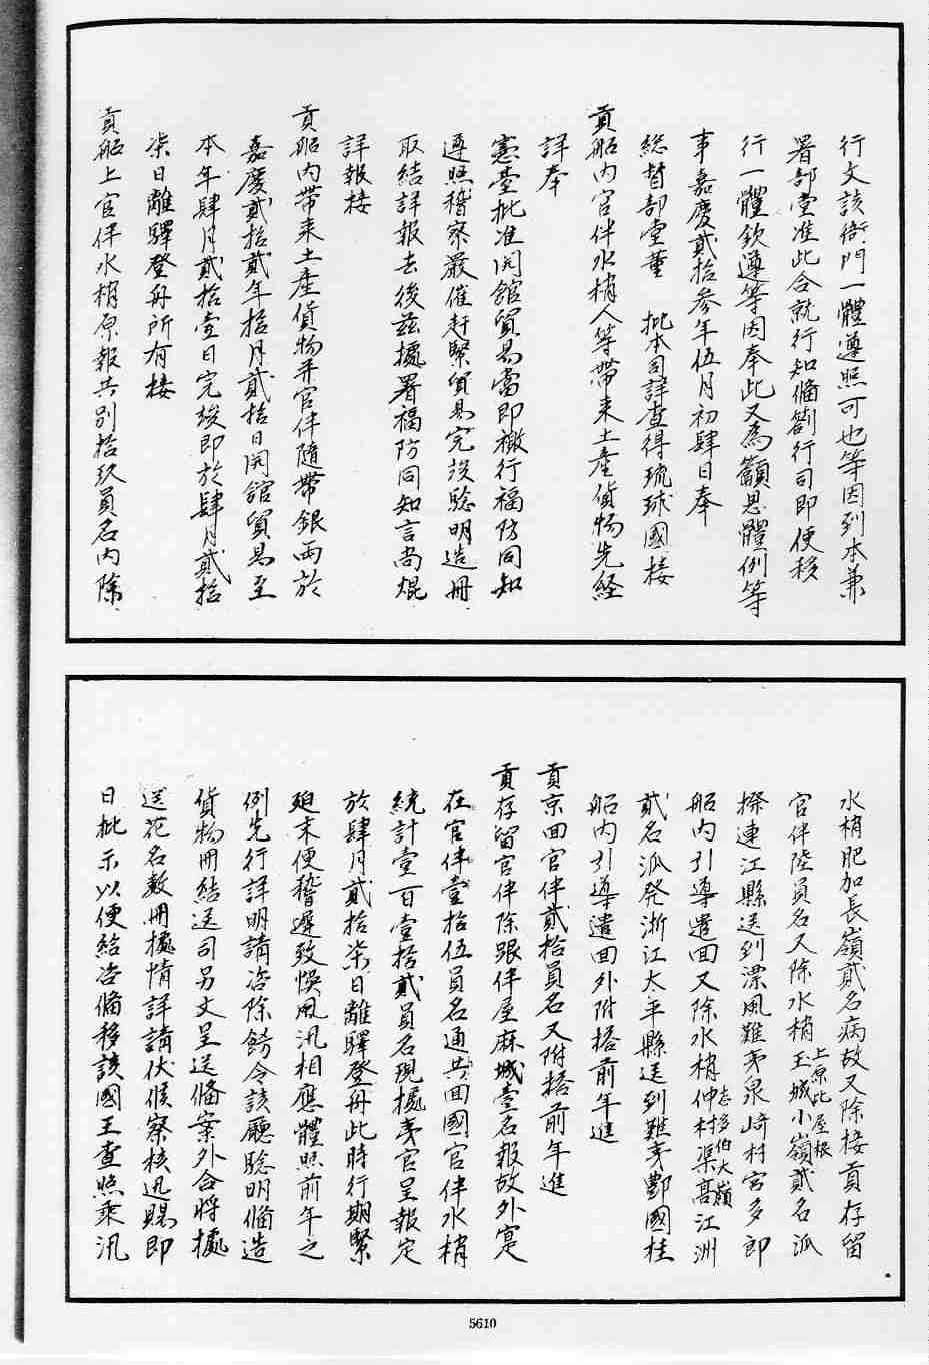 行文該衙門一體遵照可也等因到本兼
署部堂准此合就行知備劄行司即便移
行一體欽遵等因奉此又為籲恩體例等
事嘉慶貳拾參年伍月初肆日奉
總督部堂董　批本司詳查得琉球國接
貢船內官伴水梢人等帶來土產貨物先経
詳奉
憲臺批准開館貿易當即檄行福防同知
遵照稽察嚴催赶緊貿易完竣驗明造冊
取結詳報去後茲據署福防同知言尚焜
詳報接
貢船內帶來土產貨物并官伴隨帶銀兩於
嘉慶貳拾貳年拾月貳拾日開館貿易至
本年肆月貳拾壹日完竣即於肆月貳拾
柒日離驛登舟所有接
貢船上官伴水梢原報共別拾玖員名內除
水梢肥加長嶺貳名病故又除接貢存留
官伴陸員名又除水梢玉城小嶺貳名派
上原比屋根
撥連江縣送到漂風難夷泉崎村宮多郎
船內引導遣回又除水梢仲村渠髙江洲
志多伯大嶺
貳名派発浙江太平縣送到難夷鄷國桂
船內引導遣回外附搭前年進
貢京回官伴貳拾員名又附搭前年進
貢存留官伴除跟伴屋麻城壹名報故外寔
在官伴壹拾伍員名通共回國官伴水梢
統計壹百壹拾貳員名現據夷官呈報定
於肆月貳拾柒日離驛登舟此時行期緊
廹未便稽遲致悞風汛相應體照前年之
例先行詳明請咨除飭令該廳驗明備造
貨物冊結送司另文呈送備案外合將據
送花名數冊據情詳請伏候察核迅賜即
日批示以便給咨備移該國王查照乘汛
5610